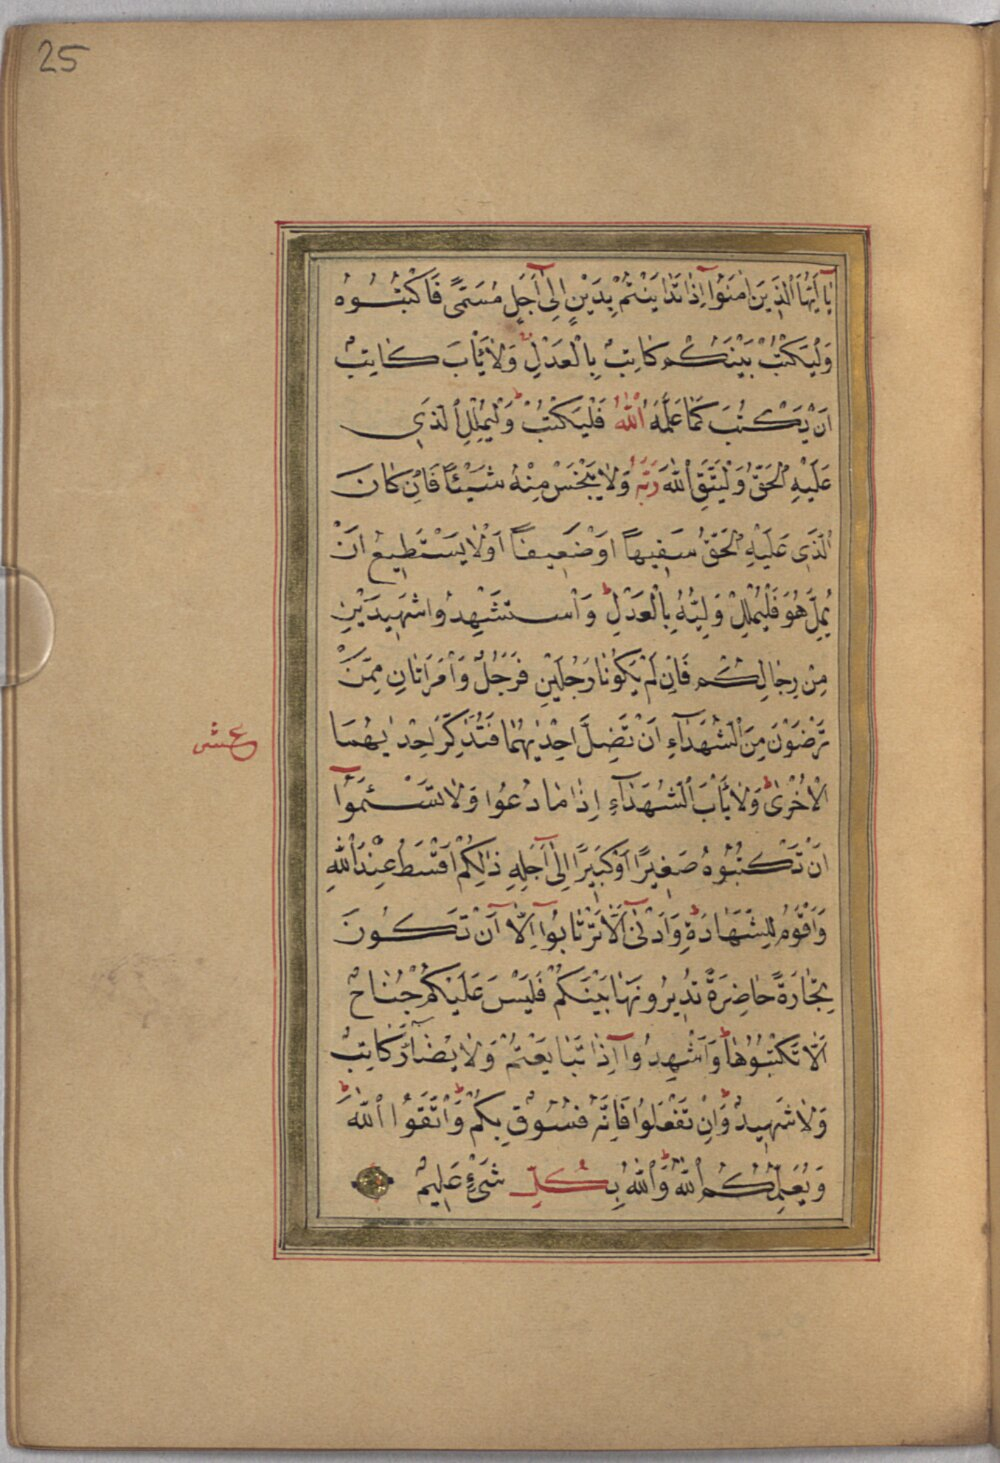 25
يَٓا اَيُّهَا الَّذ۪ينَ اٰمَنُٓوا اِذَا تَدَايَنْتُمْ بِدَيْنٍ اِلٰٓى اَجَلٍ مُسَمًّى فَاكْتُبُوهُ
وَلْيَكْتُبْ بَيْنَكُمْ كَاتِبٌ بِالْعَدْلِ وَلَا يَأْبَ كَاتِبٌ
اَنْ يَكْتُبَ كَمَا عَلَّمَهُ اللّٰهُ فَلْيَكْتُبْ وَلْيُمْلِلِ الَّذ۪ي
عَلَيْهِ الْحَقُّ وَلْيَتَّقِ اللّٰهَ رَبَّهُ وَلَا يَبْخَسْ مِنْهُ شَيْـًٔا فَاِنْ كَانَ
الَّذ۪ي عَلَيْهِ الْحَقُّ سَف۪يهًا اَوْ ضَع۪يفًا اَوْ لَا يَسْتَط۪يعُ اَنْ
يُمِلَّ هُوَ فَلْيُمْلِلْ وَلِيُّهُ بِالْعَدْلِ وَاسْتَشْهِدُوا شَه۪يدَيْنِ
مِنْ رِجَالِكُمْ فَاِنْ لَمْ يَكُونَا رَجُلَيْنِ فَرَجُلٌ وَامْرَاَتَانِ مِمَّنْ
تَرْضَوْنَ مِنَ الشُّهَدَٓاءِ اَنْ تَضِلَّ اِحْدٰيهُمَا فَتُذَكِّرَ اِحْدٰيهُمَا
عشر
الْاُخْرٰى وَلَا يَأْبَ الشُّهَدَٓاءُ اِذَا مَا دُعُوا وَلَا تَسْـَٔمُٓوا
اَنْ تَكْتُبُوهُ صَغ۪يرًا اَوْ كَب۪يرًا اِلٰٓى اَجَلِه۪ ذٰلِكُمْ اَقْسَطُ عِنْدَ اللّٰهِ
وَاَقْوَمُ لِلشَّهَادَةِ وَاَدْنٰٓى اَلَّا تَرْتَابُٓوا اِلَّٓا اَنْ تَكُونَ
تِجَارَةً حَاضِرَةً تُد۪يرُونَهَا بَيْنَكُمْ فَلَيْسَ عَلَيْكُمْ جُنَاحٌ
اَلَّا تَكْتُبُوهَا وَاَشْهِدُٓوا اِذَا تَبَايَعْتُمْ وَلَا يُضَٓارَّ كَاتِبٌ
وَلَا شَه۪يدٌ وَاِنْ تَفْعَلُوا فَاِنَّهُ فُسُوقٌ بِكُمْ وَاتَّقُوا اللّٰهَ
وَيُعَلِّمُكُمُ اللّٰهُ وَاللّٰهُ بِكُلِّ شَيْءٍ عَل۪يمٌ